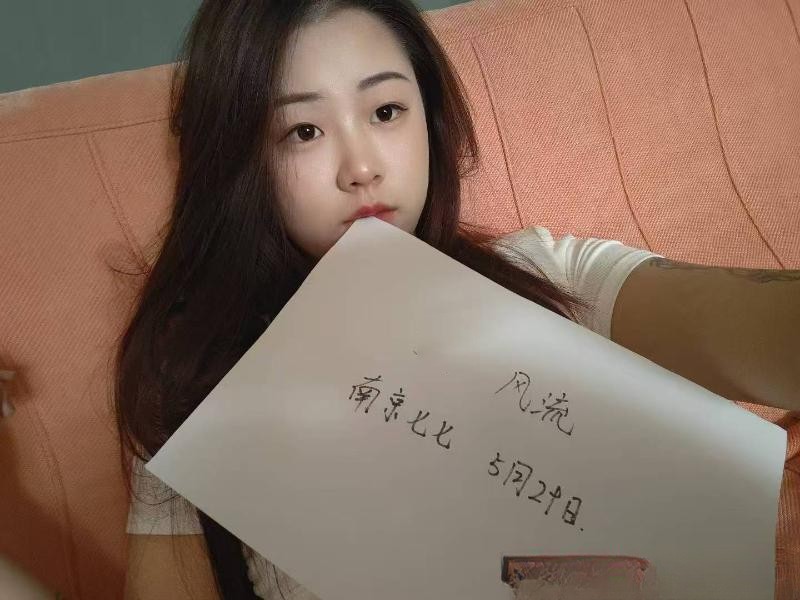 风流
南京七七 5月29日.